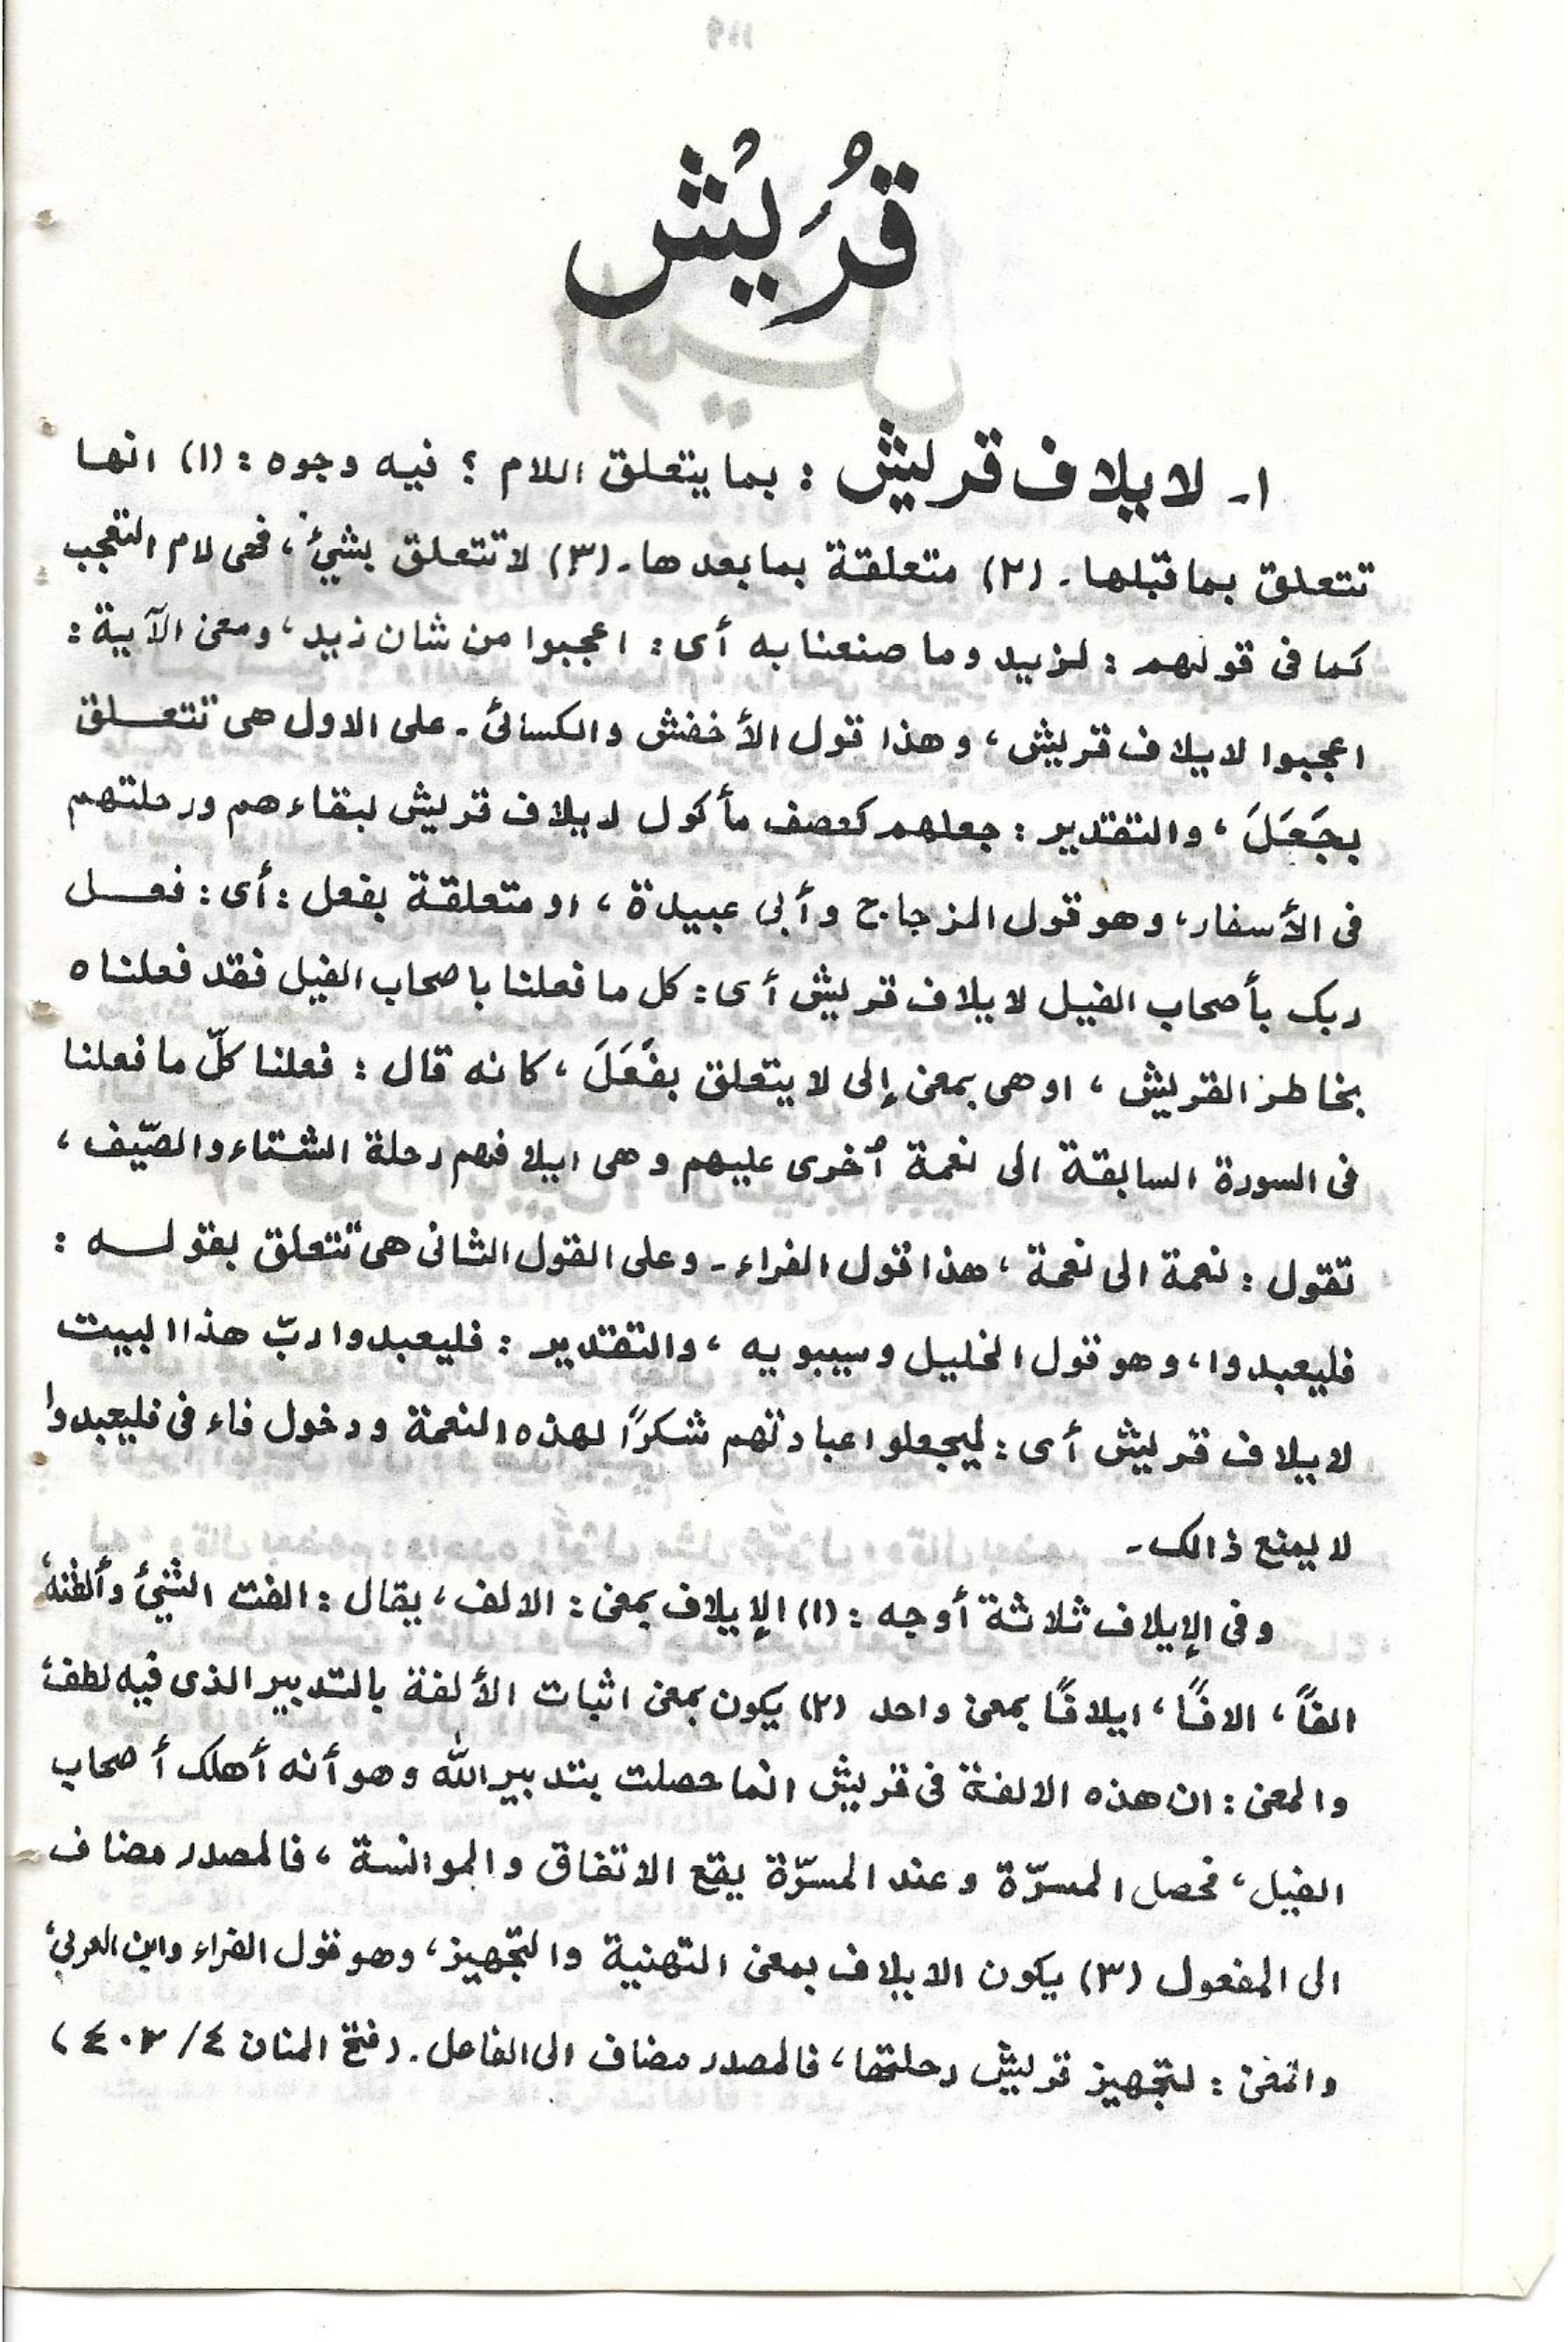 قُرَيْش
١- لايلاف قريش : بما يتعلق اللام ؟ فيه وجوه : (١) انها
تتعلق بما قبلها - (٢) متعلقة بما بعدها - (٣) لا تتعلق بشئ ، فهى لام التعجب
كما فى قولهم : لزيد وما صنعنا به أى : اعجبوا من شان زيد ، ومعنى الآية :
اعجبوا لايلاف قريش ، وهذا قول الأخفش والكسائى - على الاول هى تتعلق
بجَعَلَ ، والتقدير : جعلهم كعصف مأكول لايلاف قريش لبقاءهم ورحلتهم
فى الأسفار ، وهو قول الزجاج وأبى عبيدة ، او متعلقة بفعل : أى : فعل
ربك بأصحاب الفيل لايلاف قريش أى : كل ما فعلنا باصحاب الفيل فقد فعلناه
بخاطر القريش ، او هى بمعنى إلى لا يتعلق بفَعَلَ ، كانه قال : فعلنا كلّ ما فعلنا
فى السورة السابقة الى نعمة أخرى عليهم وهى ايلافهم رحلة الشتاء والصّيف ،
تقول : نعمة الى نعمة ، هذا قول الفراء - وعلى القول الثانى هى تتعلق بقوله :
فليعبدوا ، وهو قول الخليل وسيبويه ، والتقدير : فليعبدوا ربّ هذا البيت
لايلاف قريش أى : ليجعلوا عبادتهم شكرًا لهذه النعمة ودخول فاء فى فليعبدوا
لا يمنع ذالك -
وفى الإيلاف ثلاثة أوجه : (١) الإيلاف بمعنى : الالف ، يقال : الفت الشئ وألفته
الفاً ، الافًا ، ايلافًا بمعنى واحد (٢) يكون بمعنى اثبات الألفة بالتدبير الذى فيه لطف
والمعنى : ان هذه الالفة فى قريش انما حصلت بتدبير الله وهو أنه أهلك أصحاب
الفيل ، فحصل المسرّة وعند المسرّة يقع الاتفاق والموانسة ، فالمصدر مضاف
الى المفعول (٣) يكون الايلاف بمعنى التهنية والتجهيز ، وهو قول الفراء وابن العربى
والمعنى : لتجهيز قريش رحلتها ، فالمصدر مضاف الى الفاعل . (فتح المنان ٤/